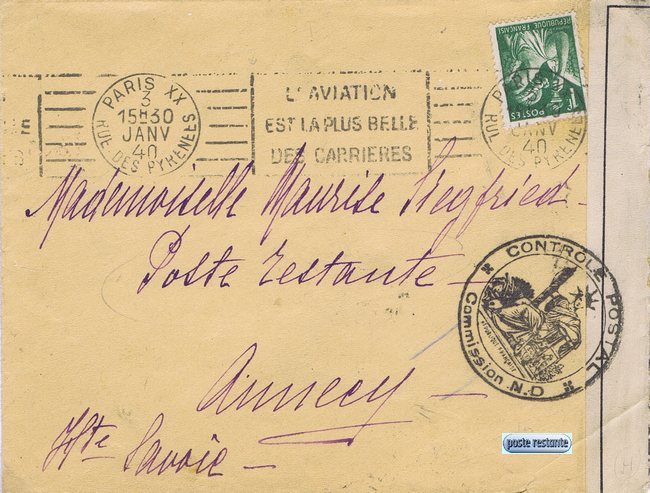 RÉPUBLIQUE FRANÇAISE
POSTES
1F
PARIS XX
3
15H30
JANV
40
RUE DES PYRENEES
L'AVIATION
EST LA PLUS BELLE
DES CARRIERES
PARIS XX
JANV
40
RUE DES PYRENEES
Mademoiselle Maurise Siegfried
Poste restante
Annecy
Hte Savoie
CONTROLE POSTAL
Commission
poste restante